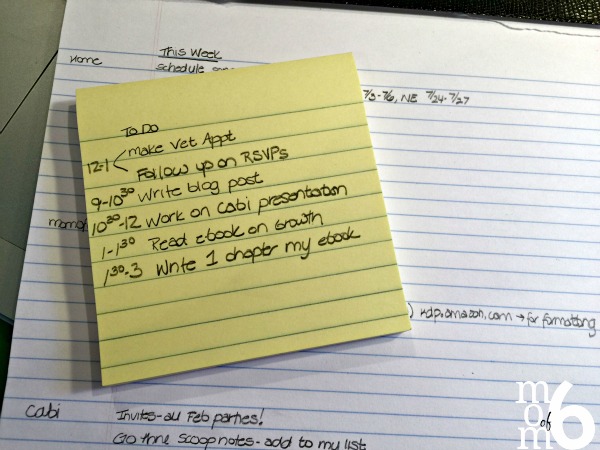 This Week
Home schedule
7/3-7/6, NE 7/24-7/27
To Do
12-1 make Vet Appt
Follow up on RSVPs
9-10³⁰ Write blog post
10³⁰-12 Work on Cabi presentation
1-1³⁰ Read ebook on Growth
1³⁰-3 Write 1 chapter my ebook
) kdp.amazon.com → for formatting
Cabi Invites-all Feb parties!
Go thru Scoop notes- add to my list
mom of 6